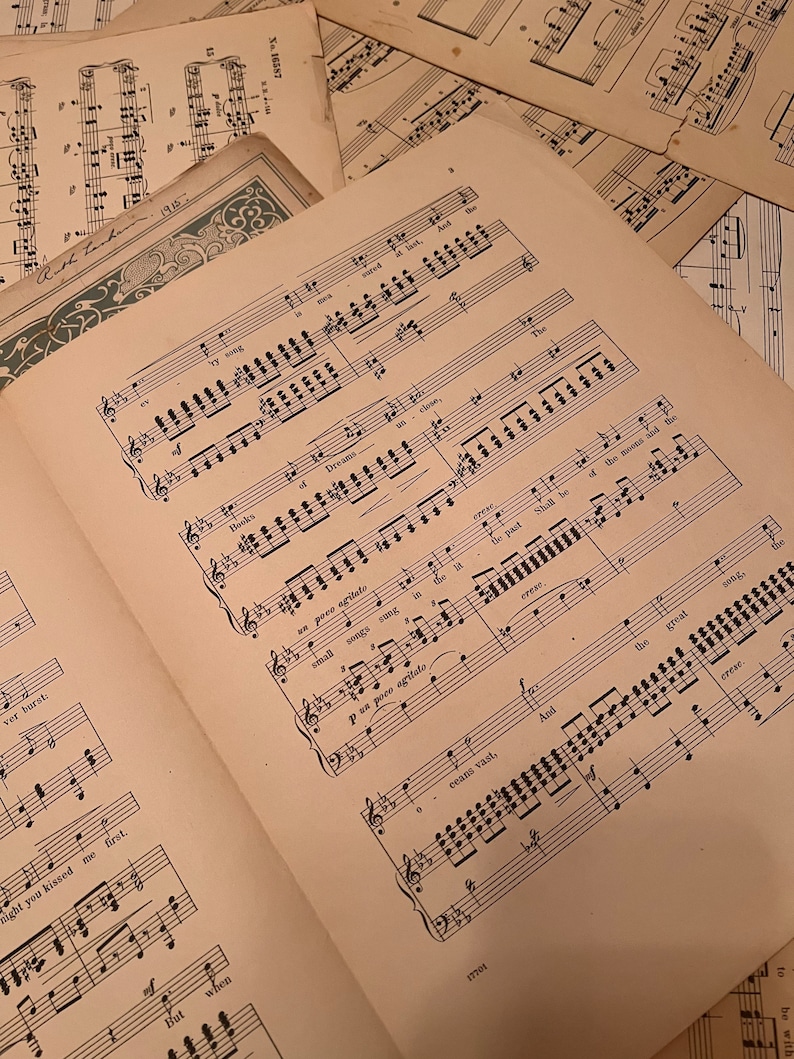 No. 16587
15
M.M. = 144
p dolce
Ruth
1915.
3
ev - 'ry song is mea - sured at last, And the
mf
Books of Dreams un - close, The
un poco agitato
cresc.
small songs sung in the lit - tle past Shall be of the moons and the
3 3 3 3
p un poco agitato
cresc.
f
o - ceans vast, And the great song, the
mf
cresc.
17701
ver burst:
night you kissed me first.
mf
But when
to be with